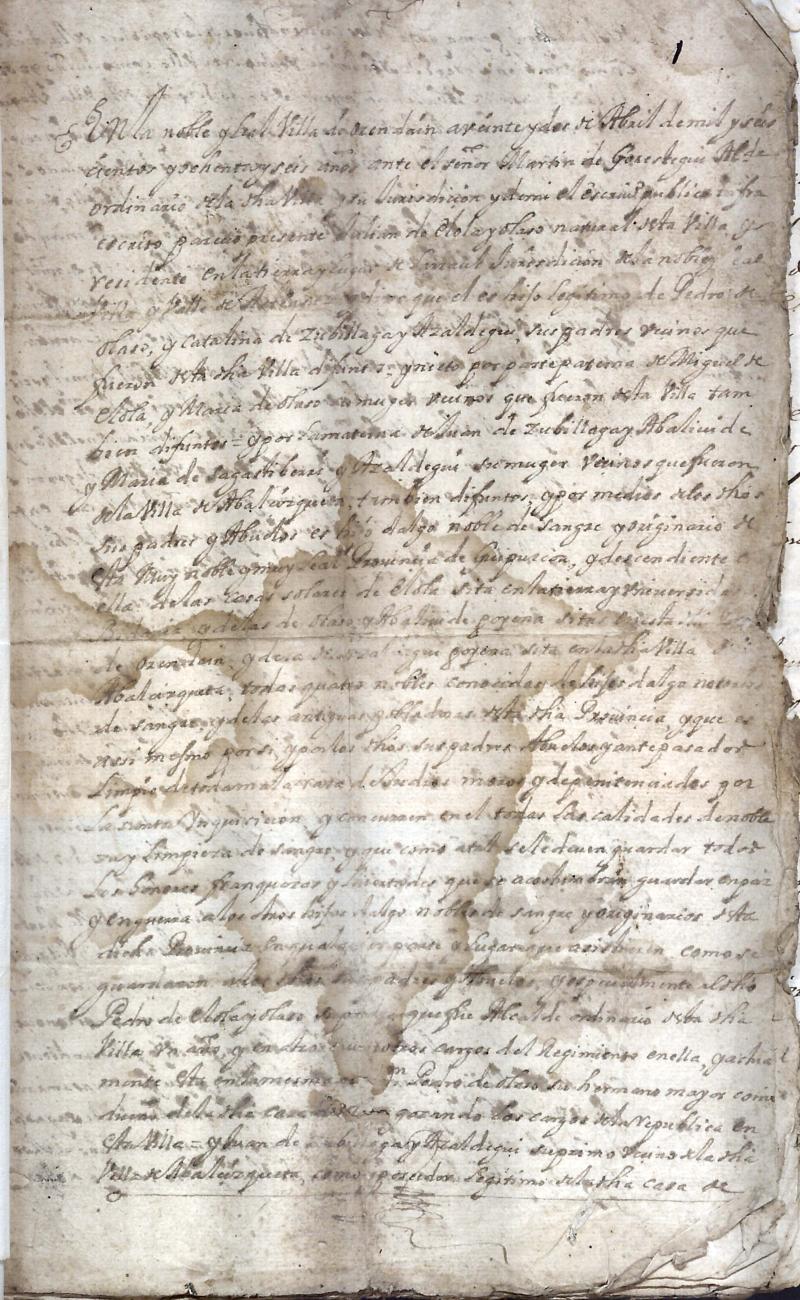 1
En la noble y Leal Villa de orendain a veinte y dos de Abril de mil y seis
cientos y ochenta y seis años ante el señor Martin de Goresteguí Alde
ordinario de la dha Villa y su Jurisdicion y de mi el escriuº publico infra
escrito parecio presente Julian de Elola y olaso natural desta Villa, y
residente en la tierra y lugar de Jurisdicion de la noble y Leal
Villa y Valle de y dixo que el es hijo legitimo de Pedro de
olaso, y Catalina de Zubillaga y Azaldegui, sus padres vecinos que
fueron desta dha Villa difuntos y nieto por parte paterna de Miguel de
Elola, y Maria de olaso su muger vecinos que fueron desta Villa tam
bien difuntos = y por la materna de Juan de Zubillaga y Abaliuide
y Maria de sagastiberri y Azaldegui su muger Vecinos que fueron
de la Villa de Abalzizqueta, tambien difuntos, y por medio de los dhos
sus padres y Abuelos es hijo dalgo noble de sangre y originario de
esta Muy noble y muy Leal Provincia de Guipuzcoa, y descendiente
ella de las casas solares de Elola sita en la tierra y vniuersidad
y de las de olaso y Abaliuide poyena sitas en esta
de orendain, y de la de Azaldegui poyena sita en la dha Villa
Abalzizqueta, todas quatro nobles conocidas de hijos dalgo notorios
de sangre, y de las antiguas pobladoras desta dha Prouincia, y que es
assi mesmo por si, y por los dhos sus padres Abuelos y antepasados
Limpio de toda mala raza de Judios moros y de penitenciados por
La santa Ynquisicion y concurren en el todas las calidades de noble
za y limpieza de sangre, y que como a tal se le deuen guardar todos
Los honores franquezas y libertades que se acostumbran guardar en paz
y en guerra a los otros hijos dalgo nobles de sangre y originarios desta
dicha Prouincia en qualquier parte y lugar que asistieren como se
guardaron a los dhos sus padres y Abuelos, y especialmente al dho
Pedro de Elola y olaso su padre que fue Alcalde ordinario desta dha
Villa vn año, y en otros cargos del Regimiento en ella, y actual
mente esta en la mesma Pedro de olaso su hermano mayor como
dueño de la dha casa de gozando los cargos de la republica en
esta Villa = y Juan de Zubillaga y Azaldegui su primo vecino de la dha
Villa de Abalzizqueta, como poseedor legitimo de la dha casa de